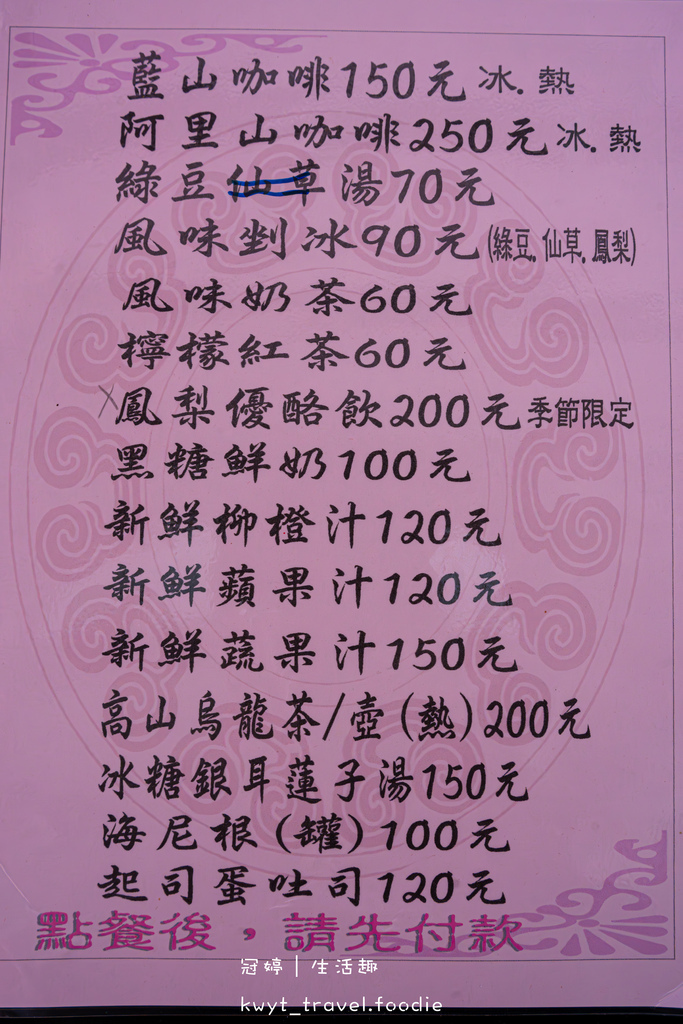 藍山咖啡150元 冰.熱
阿里山咖啡250元 冰.熱
綠豆仙草湯70元
風味剉冰90元(綠豆.仙草.鳳梨)
風味奶茶60元
檸檬紅茶60元
鳳梨優酪飲200元季節限定
黑糖鮮奶100元
新鮮柳橙汁120元
新鮮蘋果汁120元
新鮮蔬果汁150元
高山烏龍茶/壺(熱)200元
冰糖銀耳蓮子湯150元
海尼根(罐)100元
起司蛋吐司120元
點餐後，請先付款
冠婷｜生活趣
kwyt_travel.foodie